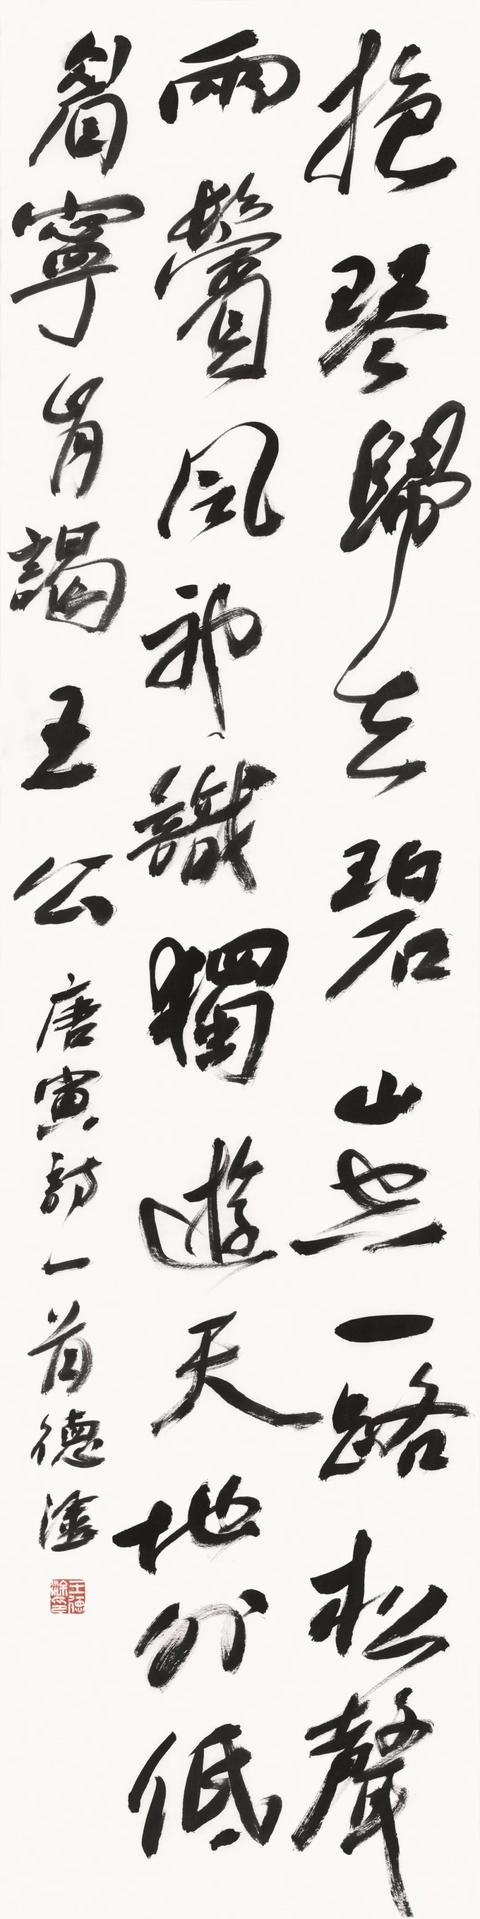 抱琴歸去碧山空一路松聲
兩鬢風神識獨遊天地外低
眉寧肯謁王公 唐寅詩一首德